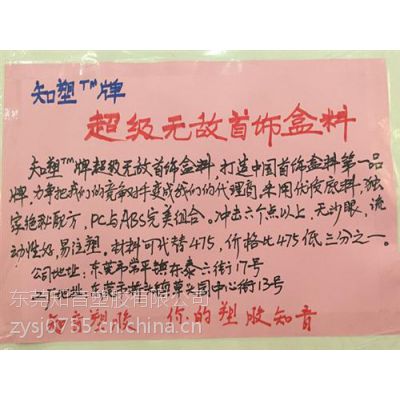 知塑™牌
超级无敌首饰盒料
知塑™牌超级无敌首饰盒料,打造中国首饰盒料第一品
牌,力争把我们的竞争对手变成我们的代理商。采用优质底料,独
家绝秘配方,PC与ABS完美组合。冲击六个点以上,无沙眼,流
动性好,易注塑。材料可代替475,价格比475低三分之一。
公司地址:东莞市常平镇东泰六街17号
工厂地址:东莞市桥头镇草头围中心街13号
东莞知音塑胶有限公司
zysj0755.cn.china.cn
知音塑胶 你的塑胶知音